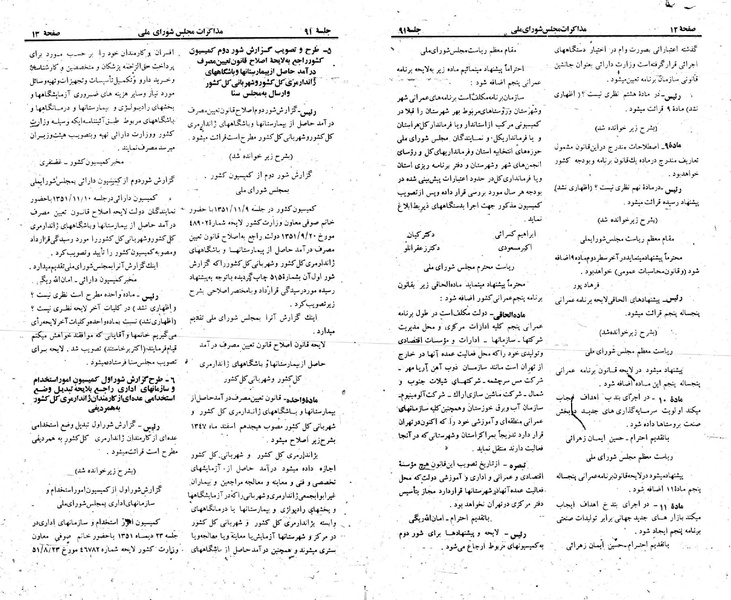 صفحه ۱۲
مذاکرات مجلس شورای ملی
جلسه ۹۱
گذشته اعتباراتی بصورت وام در اختیار دستگاههای
اجرائی قرار گرفته است وزارت دارائی بعنوان جانشین
قانونی سازمان برنامه تعیین میشود.
رئیس ـ در ماده هشتم نظری نیست ؟ (اظهاری
نشد) ماده ۹ قرائت میشود.
(بشرح زیر خوانده شد)
ماده ۹ـ اصطلاحات مندرج در این قانون مشمول
تعاریف مندرج در ماده یک قانون برنامه و بودجه کشور
خواهد بود.
رئیس ـ در ماده نهم نظری نیست ؟ (اظهاری نشد)
پیشنهاد رسیده قرائت میشود.
(بشرح زیر خوانده شد)
مقام معظم ریاست مجلس شورایملی
احتراماً پیشنهاد مینماید در آخر سطر دوم ماده ۹ اضافه
شود (و قانون محاسبات عمومی) خواهد بود.
فرهادپور
رئیس ـ پیشنهادهای الحاقی لایحه برنامه عمرانی
پنجم قرائت میشود.
(بشرح زیر خوانده شد)
ریاست معظم مجلس شورای ملی
پیشنهاد میشود در لایحه قانون برنامه عمرانی
پنجساله پنجم این ماده اضافه شود.
ماده ۱۰ ـ در اجرای بند ب اهداف ایجاب
میکند اولویت سرمایه‌گذاری های جدید در بخش
صنعت بروستاها داده شود.
با تقدیم احترام ـ حسین ایمان زهرائی
ریاست معظم مجلس شورای ملی
پیشنهاد میشود در لایحه قانون برنامه عمرانی پنجساله
پنجم ماده ۱۱ اضافه شود.
ماده ۱۱ ـ در اجرای بند خ اهداف ایجاب
میکند بازار های جدید جهانی برابر تولیدات صنعتی
برنامه ایجاد شود.
با تقدیم احترام ـ حسین ایمان زهرائی
مقام معظم ریاست مجلس شورای ملی
احتراماً پیشنهاد مینمائیم ماده زیر به لایحه برنامه
عمرانی پنجم اضافه شود.
سازمان برنامه مکلف است برنامه‌های عمرانی شهر
و شهرستان و روستاهای مربوط بهر شهرستان را قبلا در
کمیسیونی مرکب از استاندار و یا فرماندار کل هر استان
یا فرمانداری کل و نمایندگان مجلس شورای ملی
حوزه‌های انتخابیه استان و فرمانداریهای کل و رؤسای
انجمن‌های شهر و شهرستان و دفتر برنامه ریزی استان
یا فرمانداری کل در حدود اعتبارات پیش‌بینی شده در
بودجه هر سال مورد بررسی قرار داده و پس از تصویب
کمیسیون مذکور جهت اجرا بدستگاههای ذیربط ابلاغ
نماید.
ابراهیم کمرائی
دکتر کیان
اکبر مسعودی
دکتر زعفرانلو
ریاست محترم مجلس شورای ملی
محترماً پیشنهاد مینماید ماده الحاقی زیر بقانون
برنامه پنجم عمرانی کشور اضافه شود :
ماده الحاقی ـ دولت مکلف است در طول برنامه
عمرانی پنجم کلیه ادارات مرکزی و محل مدیریت
شرکتها ـ سازمانها ـ ادارات و مؤسسات اقتصادی
و تولیدی خود را که محل فعالیت عمده آنها در خارج
از تهران است مانند سازمان ذوب آهن آریا مهر ـ
شرکت مس سرچشمه ـ شرکتهای شیلات جنوب و
شمال ـ شرکت ماشین سازی اراک ـ شرکت آلومینیوم ـ
سازمان آب و برق خوزستان و همچنین کلیه سازمانهای
عمرانی منطقه‌ای و آموزشی خود را که اکنون در تهران
قرار دارد تدریجاً بمراکز استان و شهرستانی که در آنجا
فعالیت دارند منتقل نماید.
تبصره ـ از تاریخ تصویب این قانون هیچ مؤسسهٔ
اقتصادی و عمرانی و اداری و آموزشی دولت که محل
فعالیت عمده آنها در شهرستانها قرار دارد مجاز بتأسیس
دفتر مرکزی در تهران نخواهد بود.
با تقدیم احترام ـ امان‌الله ریگی
رئیس ـ لایحه و پیشنهادها برای شور دوم
به کمیسیونهای مربوط ارجاع می‌شود.
جلسه ۹۱
مذاکرات مجلس شورای ملی
صفحه ۱۳
۵ـ طرح و تصویب گزارش شور دوم کمیسیون
کشور راجع به لایحه اصلاح قانون تعیین مصرف
درآمد حاصل از بیمارستانها و باشگاههای
ژاندارمری کل کشور و شهربانی کل کشور
و ارسال به مجلس سنا
رئیس ـ گزارش شور دوم اصلاح قانون تعیین مصرف
درآمد حاصل از بیمارستانها و باشگاههای ژاندارمری
کل کشور و شهربانی کل کشور مطرح است قرائت میشود.
(بشرح زیر خوانده شد)
گزارش شور دوم از کمیسیون کشور
بمجلس شورای ملی
کمیسیون کشور در جلسه ۱۳۵۱/۱۱/۹ با حضور
خانم صوفی معاون وزارت کشور لایحه شماره ۴۸۹۰۲
مورخ ۱۳۵۱/۹/۲۰ دولت راجع به اصلاح قانون تعیین
مصرف درآمد حاصل از بیمارستانها و باشگاههای
ژاندارمری کل کشور و شهربانی کل کشور را که گزارش
شور اول آن بشماره ۵۱۵ چاپ گردیده با توجه به پیشنهاد
رسیده مورد رسیدگی قرار داد و با مختصر اصلاحی بشرح
زیر تصویب کرد.
اینک گزارش آنرا بمجلس شورای ملی تقدیم
میدارد.
لایحه قانون اصلاح قانون تعیین مصرف درآمد
حاصل از بیمارستانها و باشگاههای ژاندارمری
کل کشور و شهربانی کل کشور
ماده واحده ـ قانون تعیین مصرف درآمد حاصل از
بیمارستانها و باشگاههای ژاندارمری کل کشور و
شهربانی کل کشور مصوب هیجدهم اسفند ماه ۱۳۴۷
بشرح زیر اصلاح میشود.
بژاندارمری کل کشور و شهربانی کل کشور
اجازه داده میشود درآمد حاصل از آزمایشهای
تخصصی و فنی و معاینه و معالجه مراجعین و بیماران
غیر ابوابجمعی ژاندارمری و شهربانی را که در آزمایشگاهها
و بخشهای رادیولوژی و بیمارستانها یا درمانگاههای
وابسته بژاندارمری کل کشور و شهربانی کل کشور
در مرکز و شهرستانها آزمایش یا معاینه و یا معالجه و یا
بستری میشوند و همچنین درآمد حاصل از باشگاههای
افسران و کارمندان خود را بر حسب مورد برای
پرداخت حق‌الزحمه پزشکان و متخصصین و کارشناسان
و خرید دارو و تکمیل تأسیسات و تجهیزات و تهیه وسائل
مورد نیاز و سایر هزینه های ضروری آزمایشگاهها و
بخشهای رادیولوژی و بیمارستانها و درمانگاهها و
باشگاههای مربوط طبق آئیننامه‌ایکه وسیله وزارت
کشور و وزارت دارائی تهیه و بتصویب هیئت وزیران
میرسد مصرف نمایند.
مخبر کمیسیون کشور ـ غضنفری
گزارش شور دوم از کمیسیون دارائی بمجلس شورایملی
کمیسیون دارائی در جلسه ۱۳۵۱/۱۱/۱۰ با حضور
نمایندگان دولت لایحه اصلاح قانون تعیین مصرف
درآمد حاصل از بیمارستانها و باشگاههای ژاندارمری
کل کشور و شهربانی کل کشور را مورد رسیدگی قرار داد
و مصوبه کمیسیون کشور را تأیید و تصویب کرد.
اینک گزارش آنرا بمجلس شورای ملی تقدیم میدارد.
مخبر کمیسیون دارائی ـ امان‌الله ریگی
رئیس ـ ماده واحده مطرح است نظری نیست ؟
(اظهاری نشد) در کلیات آخر لایحه نظری نیست ؟
(اظهاری نشد) نسبت بماده واحده و کلیات آخر لایحه رأی
می‌گیریم خانمها و آقایانی که موافقند خواهش میکنم
قیام فرمایند (اکثر برخاستند) تصویب شد. لایحه برای
تصویب مجلس سنا فرستاده میشود.
۶ ـ طرح گزارش شور اول کمیسیون امور استخدام
و سازمانهای اداری راجع بلایحه تبدیل وضع
استخدامی عده‌ای از کارمندان ژاندارمری کل کشور
به همردیفی
رئیس ـ گزارش شور اول تبدیل وضع استخدامی
عده‌ای از کارمندان ژاندارمری کل کشور به همردیفی
مطرح است قرائت میشود.
(بشرح زیر خوانده شد)
گزارش شور اول از کمیسیون امور استخدام و
سازمانهای اداری بمجلس شورای ملی
کمیسیون امور استخدام و سازمانهای اداری در
جلسه ۲۳ دیماه ۱۳۵۱ با حضور خانم صوفی معاون
وزارت کشور لایحه شماره ۴۶۷۸۲ مورخ ۵۱/۸/۲۳